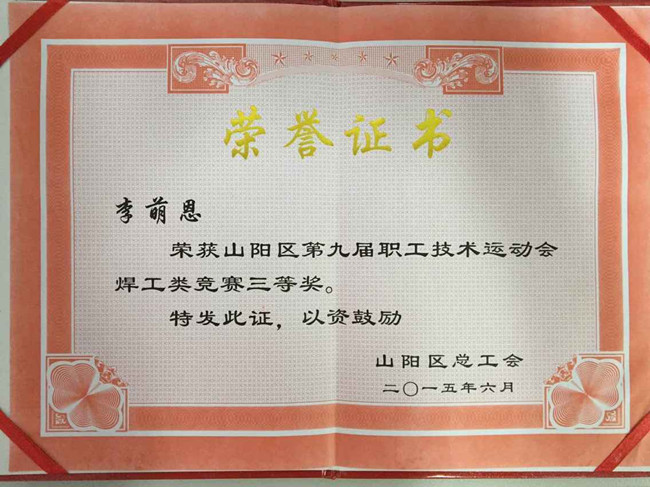 荣誉证书
李萌恩
荣获山阳区第九届职工技术运动会
焊工类竞赛三等奖。
特发此证，以资鼓励
山阳区总工会
二〇一五年六月